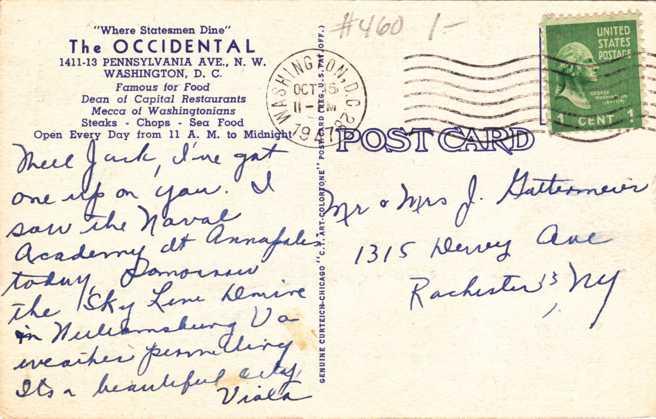 "Where Statesmen Dine"
The OCCIDENTAL
1411-13 PENNSYLVANIA AVE., N. W.
WASHINGTON, D. C.
Famous for Food
Dean of Capital Restaurants
Mecca of Washingtonians
Steaks - Chops - Sea Food
Open Every Day from 11 A. M. to Midnight
Well Jack, I've got
one up on you. I
saw the Naval
Academy at Annapolis
today, Tomorrow
the Sky Line Drive
in Williamsburg Va
weather permitting
Its a beautiful city
Viola
GENUINE CURTEICH-CHICAGO "C.T. ART-COLORTONE" POST CARD (REG. U.S. PAT. OFF.)
#460 1-
WASHINGTON, D.C.
OCT
11-
UNITED
STATES
POSTAGE
1 CENT 1
POST CARD
Mr & Mrs J. Gattermeier
1315 Dewey Ave
Rochester 13, NY